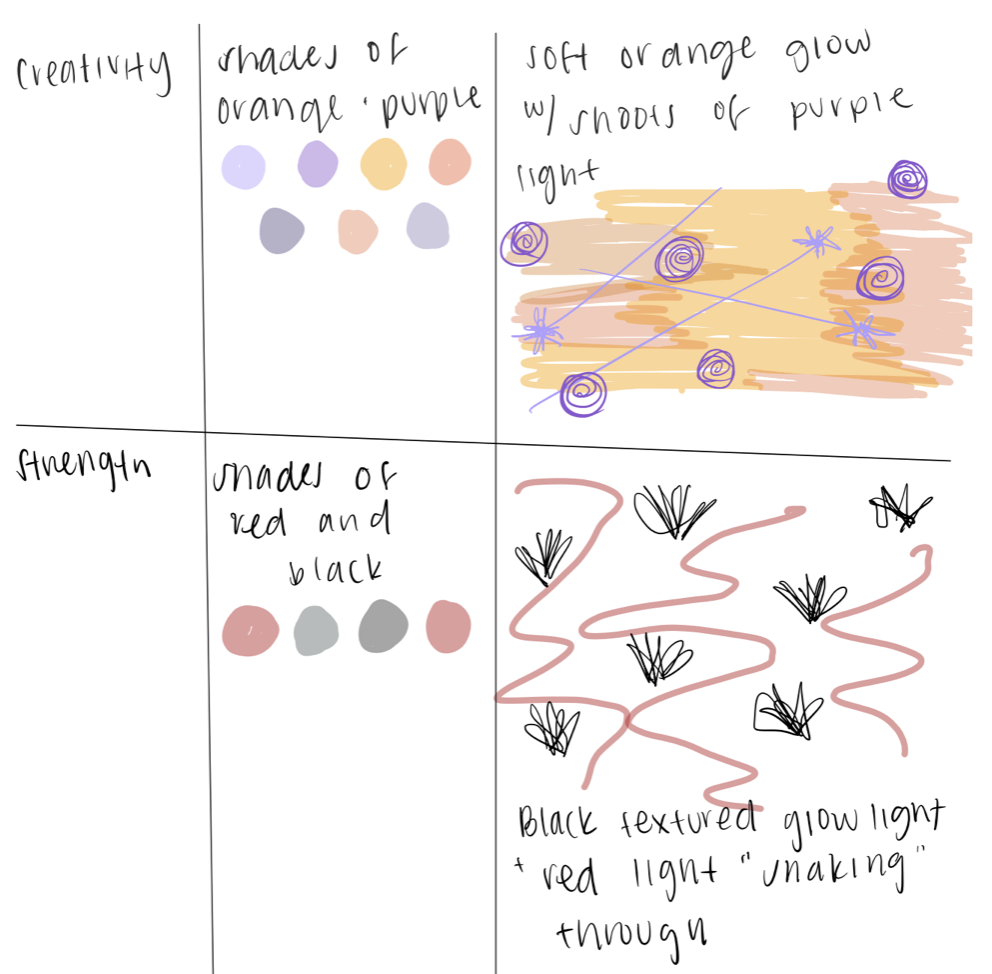 Creativity
shades of
orange · purple
soft orange glow
w/ shoots of purple
light
Strength
shades of
red and
black
Black textured glow light
+ red light "snaking"
through